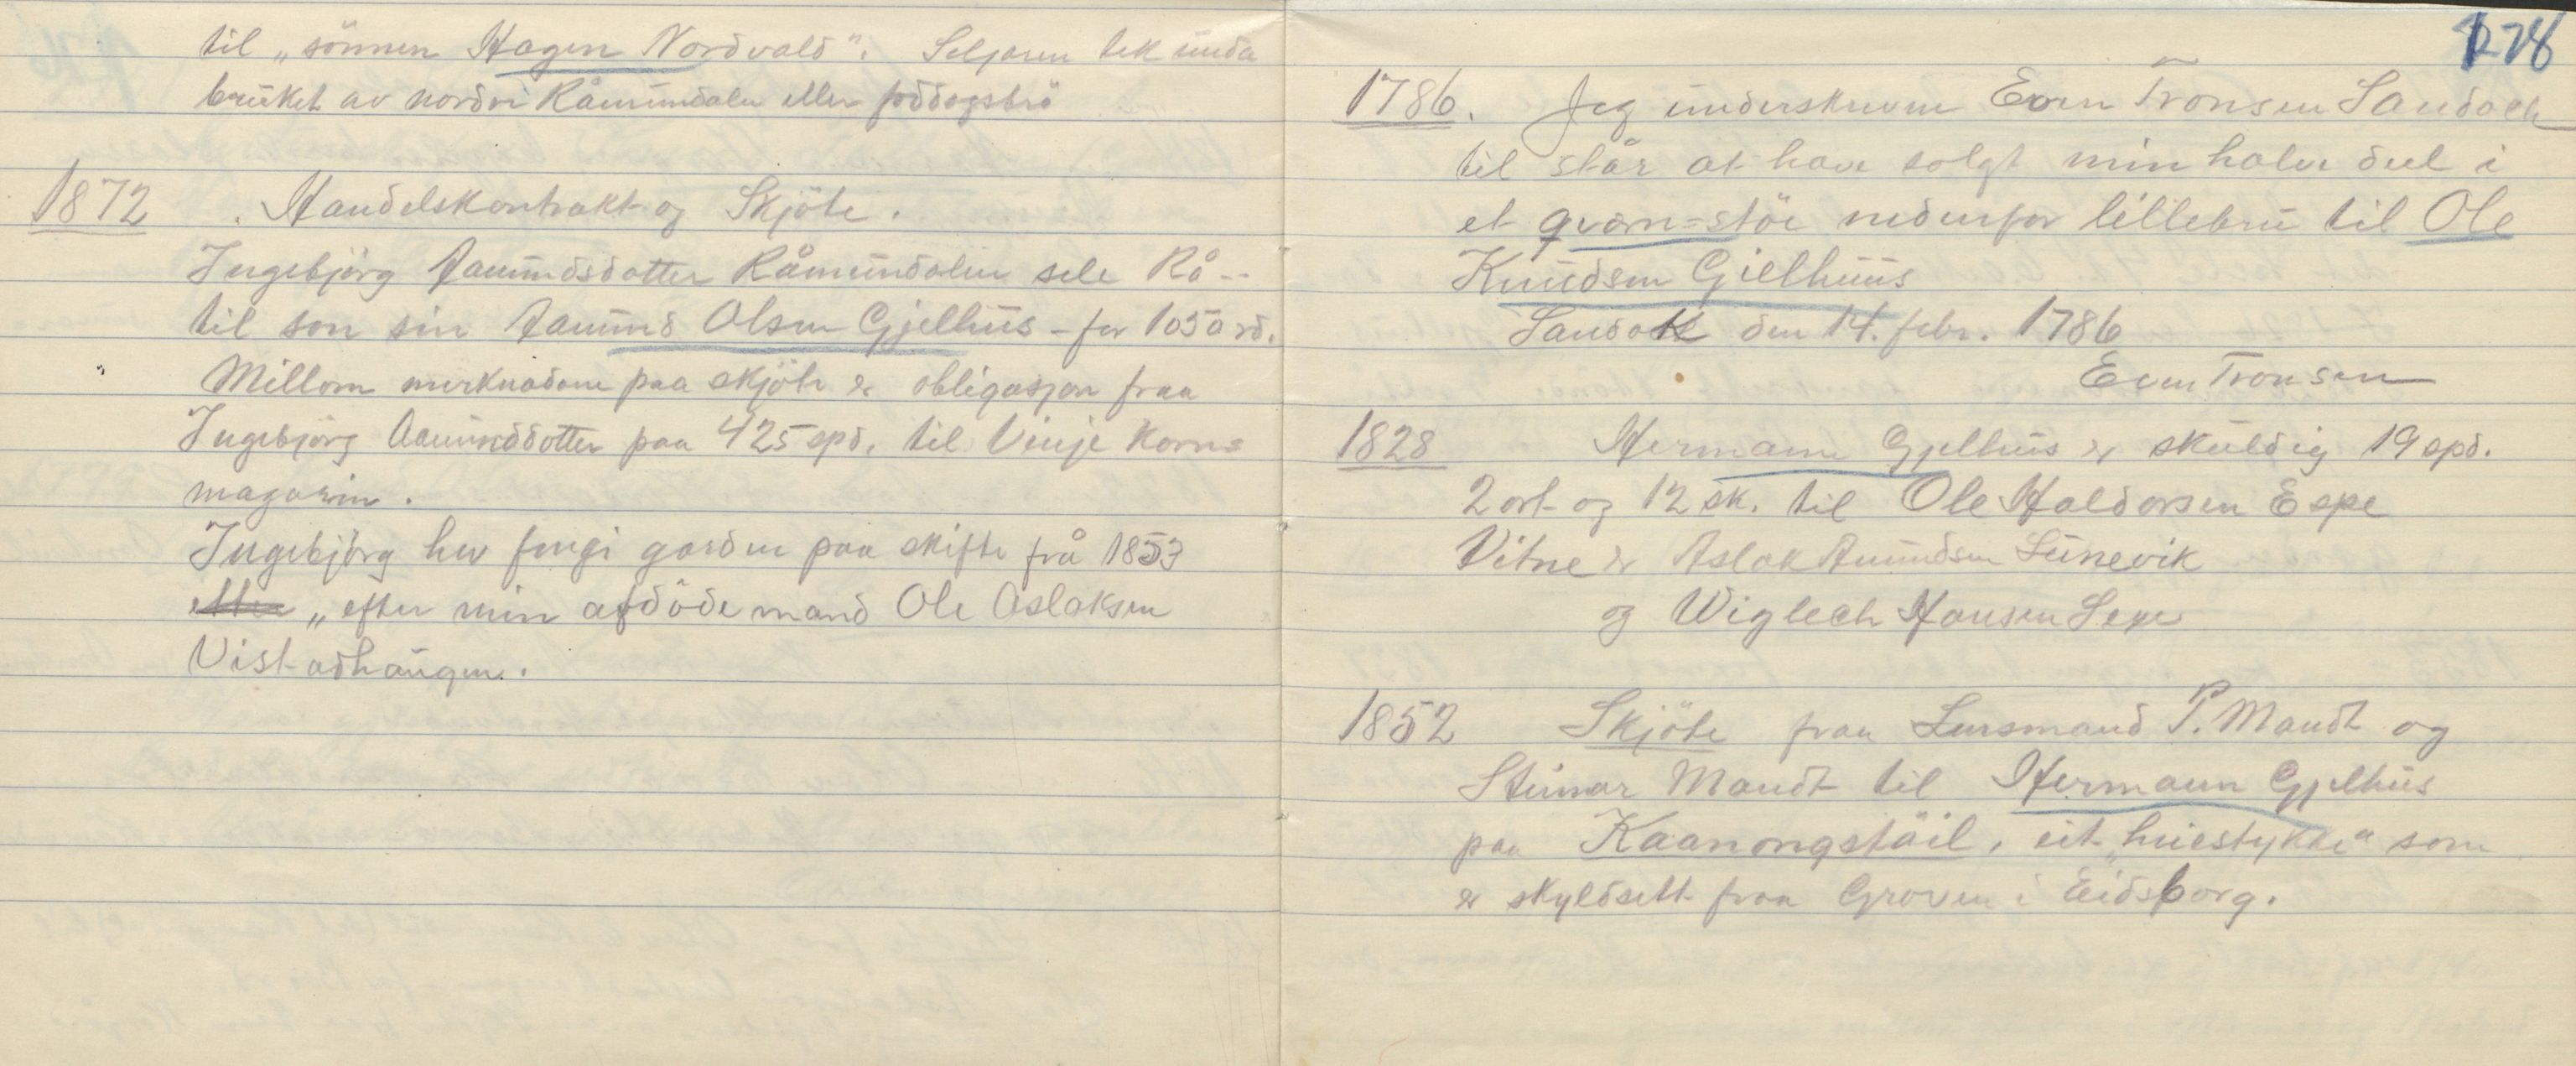 til „sönnen Hagen Nordvald". Seljaren tek unda
bruket av nordri Råmundalen eller föddogsbrö
1872 . Handelskontrakt og Skjöte.
Ingebjörg Aamundsdatter Råmundalen sele Rå--
til son sin Aamund Olsen Gjelhus - for 1050 rd.
Millom merknadane paa skjöte er obligasjon fraa
Ingebjörg Aamunddotter paa 425 spd. til Vinje Korn=
magasin.
Ingebjörg hev fengi garden paa skifte frå 1853
„efter min afdöde mand Ole Aslaksen
Vistadhaugen.
278
1786. Jeg underskrevne Even Tronsen Sandok
til står at have solgt min halve deel i
et qværn=stöe nedenfor lillebru til Ole
Knudsen Gielhuus
Sandok den 14. febr. 1786
Even Tronsen
1828 Hermann Gjelhus er skuldig 19 spd.
2 ort og 12 sk. til Ole Haldorsen Espe
Vitne er Aslak Aumundsen Lunevik
og Wiglech Hansen Lexe
1852 Skjöte fraa Lensmand P. Mandt og
Steinar Mandt til Hermann Gjelhus
paa Kaanongstöil, eit „heiestykke" som
er skyldsett fraa Groven i Eidsborg.